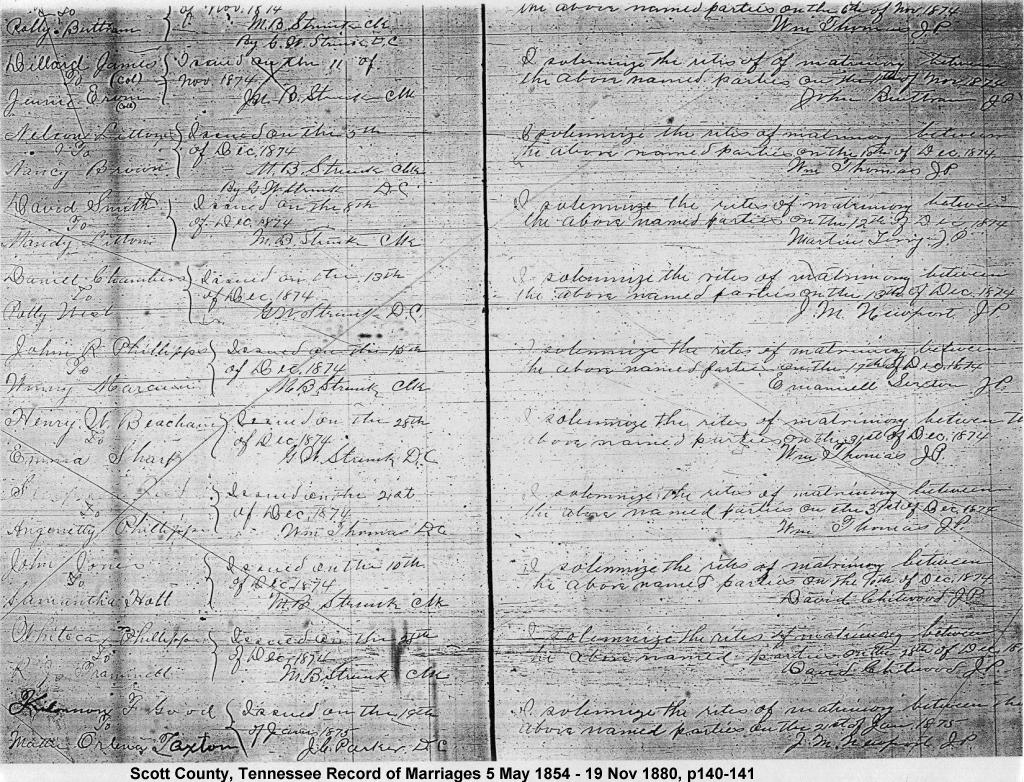 to of Nov. 1874 the above named parties on the 6th of Nov 1874
Polly Buttram M. B. Strunk Clk Wm Thomas J P
By G. W. Strunk D C
Dillard James Issued on the 11 of I solemnize the rites of of matrimony between
To (Col) Nov. 1874 the above named parties on the of Nov 1874
Jennie (Col) M. B. Strunk Clk John Buttram J P
Nelson Litton Issued on the 5th I solemnize the rites of matrimony between
To of Dec, 1874 the above named parties on the 10th of Dec, 1874
Nancy Brown M. B. Strunk Clk Wm Thomas J P
By G W Strunk D C
David Smith Issued on the 8th I solemnize the rites of matrimony between
To of Dec, 1874 the above named parties on the 12th of Dec, 1874
Mandy Litton M. B. Strunk Clk Martin J. P.
Daniel Chambers Issued on the 13th I solemnize the rites of matrimony between
to of Dec, 1874 the above named parties on the of Dec, 1874
Polly West G W Strunk D. C. J. M. Newport J P
John R Phillipps Issued on the 15th I solemnize the rites of matrimony between
To of Dec, 1874 the above named parties on the 17th of Dec, 1874
Marcum M. B. Strunk Clk Emanuell Sexton J P
Henry W. Beacham Issued on the 28th I solemnize the rites of matrimony between the
to of Dec, 1874 above named parties on the 31st of Dec, 1874
Emma Sharp G W Strunk D. C. Wm Thomas J P.
Issued on the 21st I solemnize the rites of matrimony between
to of Dec, 1874 the above named parties on the of Dec, 1874
Angonetty Phillipps Wm Thomas D. C. Wm Thomas J P.
John Jones Issued on the 10th I solemnize the rites of matrimony between
to of Dec, 1874 the above named parties on the of Dec, 1874
Samantha Holt M. B. Strunk Clk David Chitwood J P.
Phillipps Issued on the I solemnize the rites of matrimony between
to of Dec, 1874 the above named parties on the 28th of Dec, 18
R. J. M. B. Strunk Clk David Chitwood J P.
F Good Issued on the 19th I solemnize the rites of matrimony between the
to of Jan, 1875 above named parties on the 21st of Jan 1875
Orlena Taxton J. C. Parker. D C J. M. Newport J P
Scott County, Tennessee Record of Marriages 5 May 1854 - 19 Nov 1880, p140-141